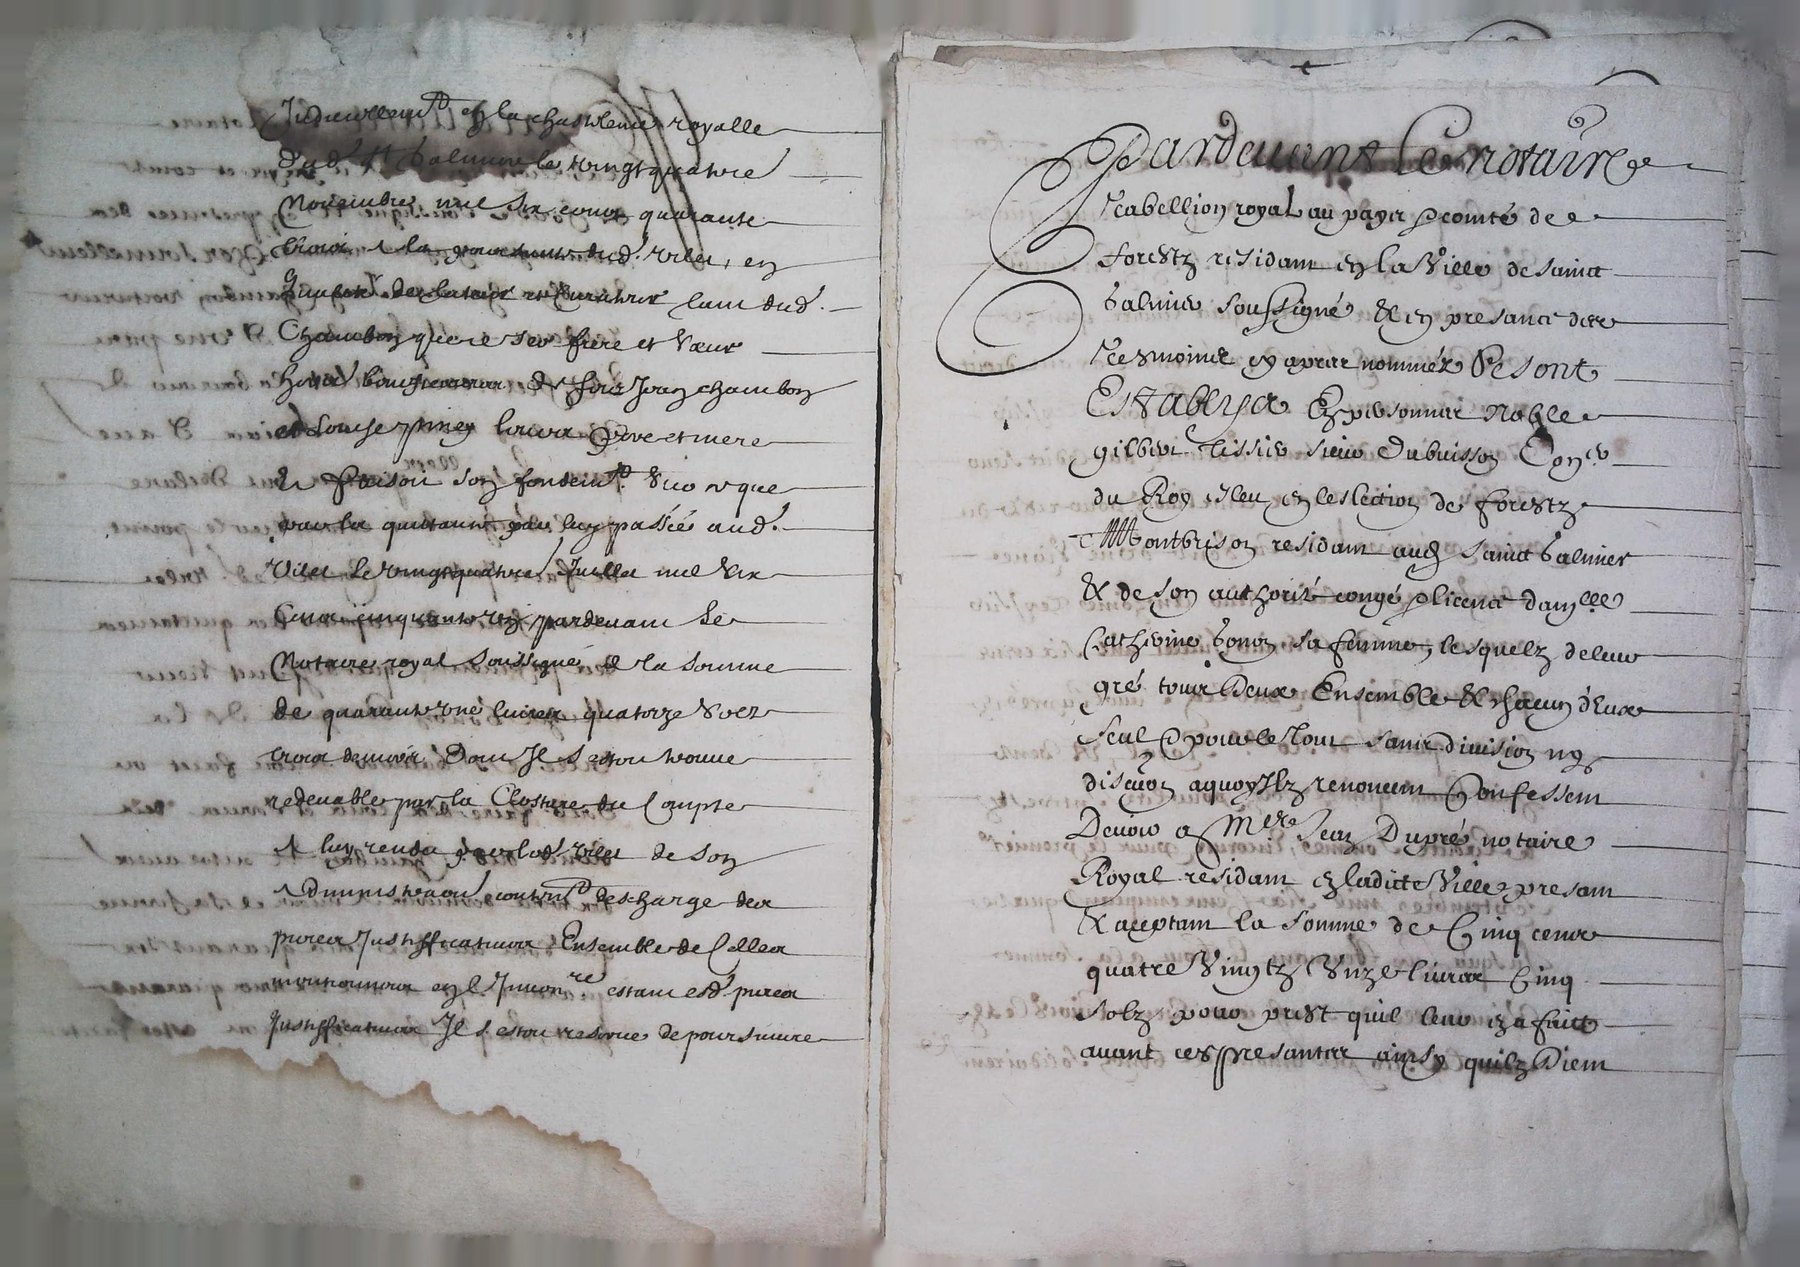 Judiciellemt en la chastelenie royalle
dud. St Galmier le vingtquatre
Novembre mil six centz quarante
trois a la poursuitte dud. Viles, en
qualité de
Chambon que de ses frere et sœur
de feus Jean chambon
et Louise leurs pere et mere
son fondemt. sur ce que
par la quittance par luy passée aud.
Viles le vingtquatre Juillet mil six
Centz cinquante pardevant le
Notaire royal soussigné de la somme
de quarante une livres quatorze solz
trois deniers Dont Il s estoit trouvé
redevable par la Closture du Compte
a luy rendu par led. Viles de son
Administraon content descharge des
pieces Justifficatives Ensemble de Celles
mentionnées en l Inventre estans esd. pieces
Justifficatives Il s estoit reservé de poursuivre
Pardevant Le notaire
Tabellion royal au pays & comté de
forestz residant en la Ville de sainct
Galmier soussigné & en presance des
Tesmoings cy apres nommés Se sont
Establys En personnes Noble
gilbert Tissier sieur Dubuisson Coner
du Roy esleu en leslection de forestz
Montbrison residant aud sainct Galmier
& de son authorité congé & licence damlle
Catherine bonot sa femme, lesquelz de leur
gré tous Deux Ensemble & chacun d'Eux
seul & pour le Tout sans division ny
discuon aquoy Ilz renoncent Confessent
Devoir a Mtre Jean Dupré notaire
Royal residant en ladicte Ville present
& acceptant la somme de Cinq centz
quatre Vingtz Unze livres Cinq
solz pour prest quil leur en a faict
avant ces presantes ainsy quilz Dient